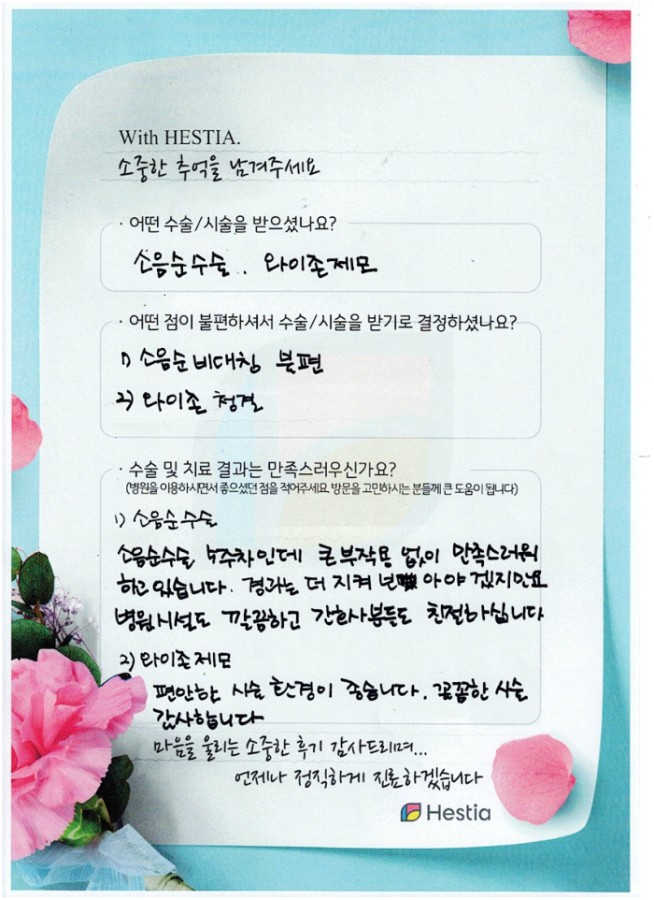 With HESTIA.
소중한 추억을 남겨주세요
· 어떤 수술/시술을 받으셨나요?
소음순수술. 와이존제모
· 어떤 점이 불편하셔서 수술/시술을 받기로 결정하셨나요?
1) 소음순비대칭 불편
2) 와이존 청결
· 수술 및 치료 결과는 만족스러우신가요?
(병원을 이용하시면서 좋으셨던 점을 적어주세요. 방문을 고민하시는 분들께 큰 도움이 됩니다)
1) 소음순수술
소음순수술 5주차인데 큰 부작용 없이 만족스러워
하고 있습니다. 경과는 더 지켜 아야 겠지만요
병원시설도 깔끔하고 간호사분들도 친절하십니다
2) 와이존제모
편안한 시술 환경이 좋습니다. 꼼꼼한 시술
감사합니다
마음을 울리는 소중한 후기 감사드리며...
언제나 정직하게 진료하겠습니다
Hestia